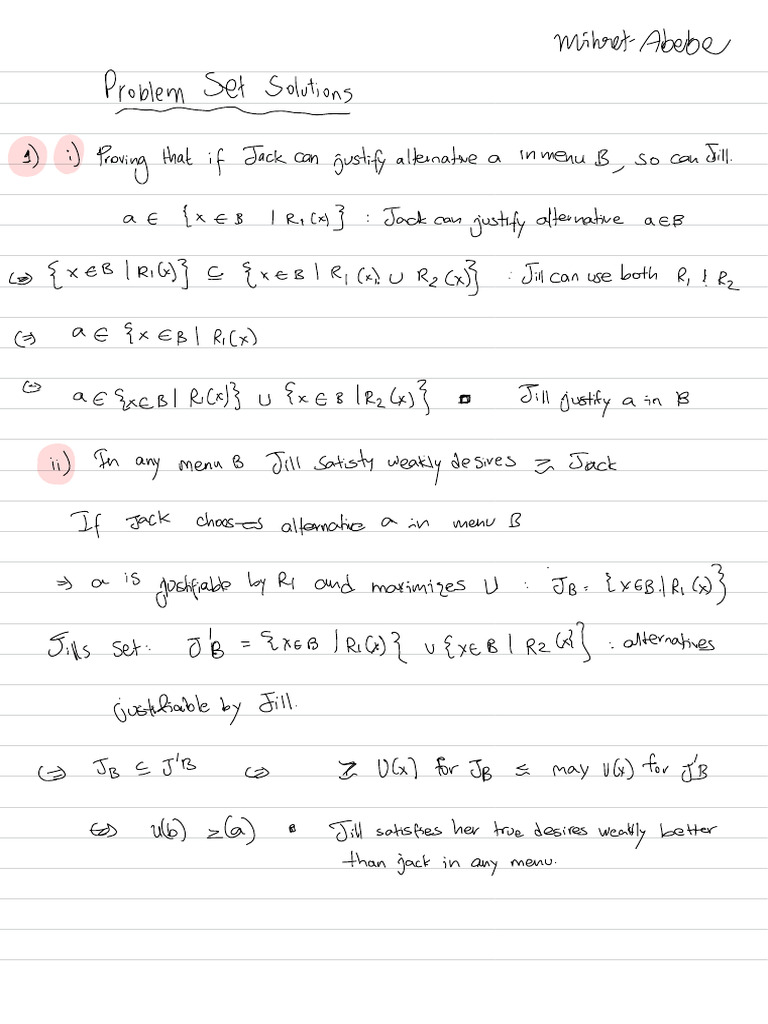 Mihret Abebe
Problem Set Solutions
1) i) Proving that if Jack can justify alternative a in menu B, so can Jill.
a ∈ {x ∈ B | R₁(x)} : Jack can justify alternative a∈B
⇔ {x ∈ B | R₁(x)} ⊆ {x ∈ B | R₁(x) ∪ R₂(x)} : Jill can use both R₁ ! R₂
⇔ a ∈ {x ∈ B | R₁(x)
⇔ a ∈ {x∈B | R(x)} ∪ {x ∈ B | R₂(x)} ▪ Jill justify a in B
ii) In any menu B Jill satisfy weakly desires ≥ Jack
If Jack chooses alternative a in menu B
⇒ a is justifiable by R₁ and maximizes U : J_B = {x∈B | R₁(x)}
Jills set: J'_B = {x∈B | R₁(x)} ∪ {x∈B | R2(x)} : alternatives
justifiable by Jill.
⇔ J_B ⊆ J'_B ⇔ ≥ U(x) for J_B ≤ may U(x) for J'_B
⇔ u(b) ≥(a) ▪ Jill satisfies her true desires weakly better
than jack in any menu.